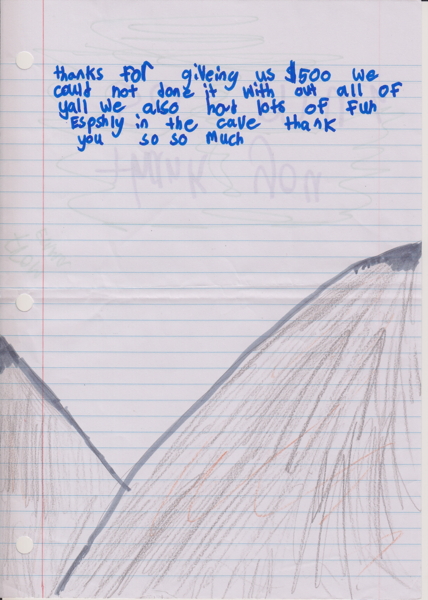 thanks for giveing us $500 we
could not done it with out all of
yall we also hod lots of fun
Espshly in the cave thank
you so so much
thank you